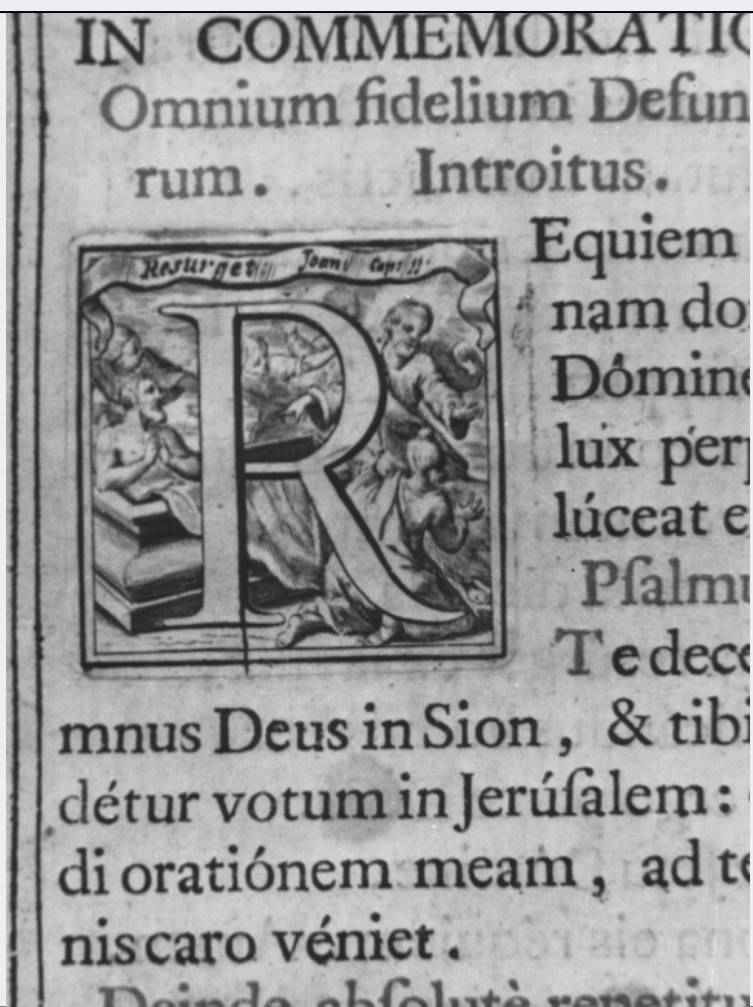 IN COMMEMORATIO
Omnium fidelium Defun
rum. Introitus.
Resurget Joan: Cap: 11
REquiem
nam do
Dómine
lux per
lúceat e
Pſalmu
Te dece
mnus Deus in Sion, & tibi
détur votum in Jerúſalem:
di oratiónem meam, ad te
nis caro véniet.
Deinde abſolutè repetitu